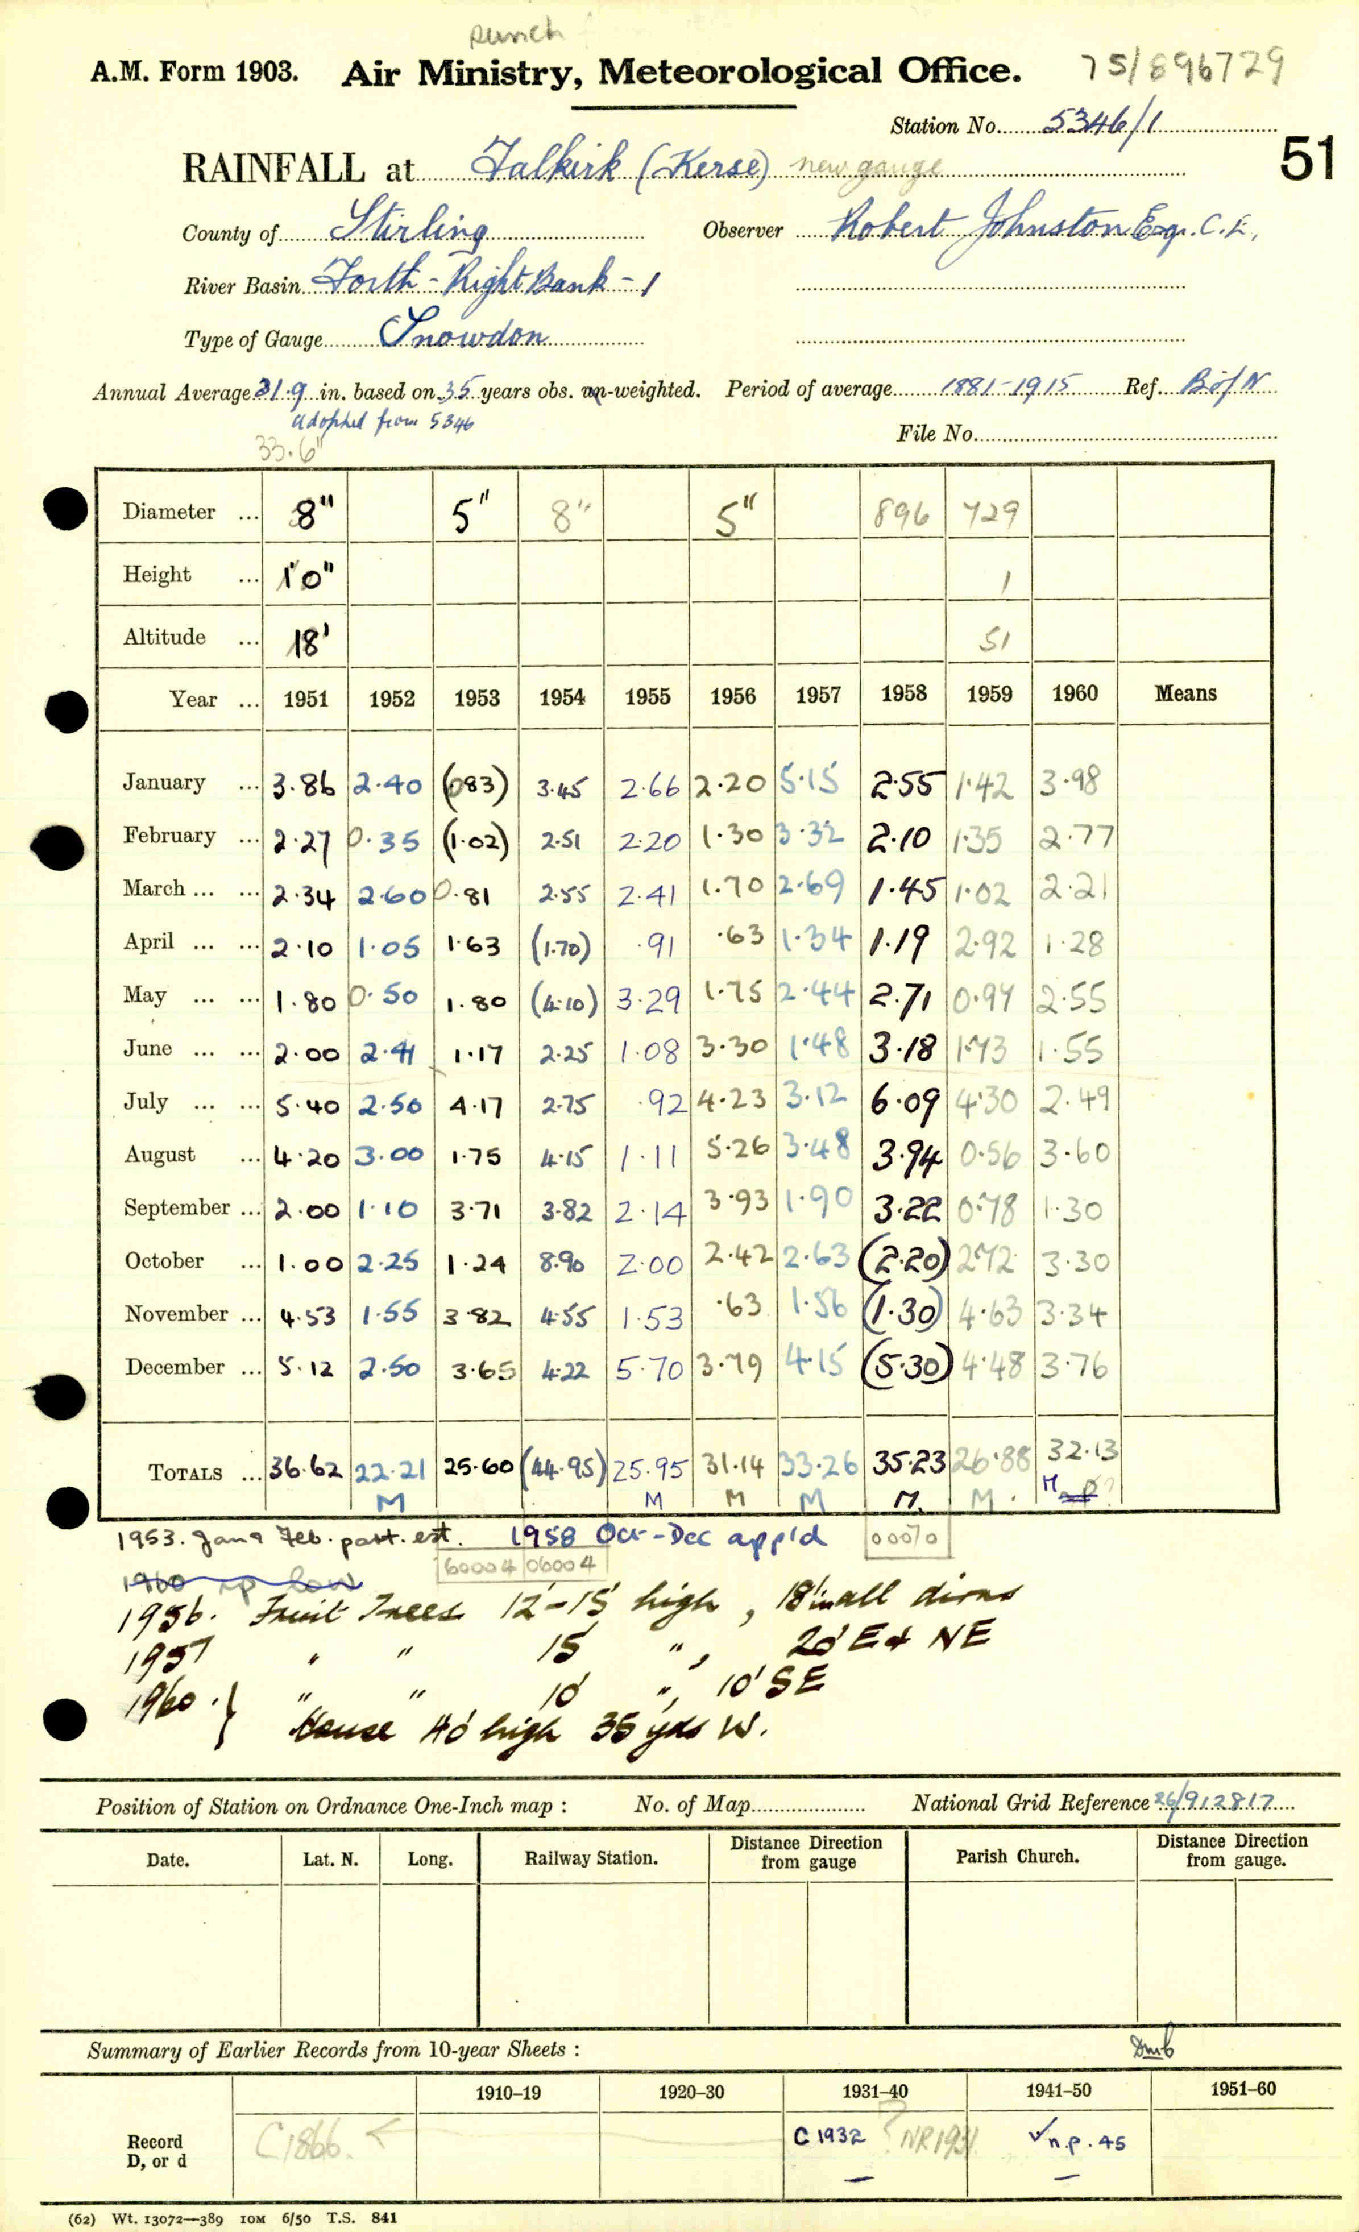 punch
A.M. Form 1903. Air Ministry, Meteorological Office. 75/896729
Station No. 5346/1
51
RAINFALL at Falkirk (Kerse) new gauge
County of Stirling Observer Robert Johnston Esq. C.E.
River Basin Forth - Right Bank - 1
Type of Gauge Snowdon
Annual Average 31.9 in. based on 35 years obs. un-weighted. Period of average 1881-1915 Ref. B of N
adopted from 5346
33.6"
File No.
Diameter ... 8" 5" 8" 5" 896 729
Height ... 1'0" 1
Altitude ... 18' 51
Year ... 1951 1952 1953 1954 1955 1956 1957 1958 1959 1960 Means
January ... 3.86 2.40 (0.83) 3.45 2.66 2.20 5.15 2.55 1.42 3.98
February ... 2.27 0.35 (1.02) 2.51 2.20 1.30 3.32 2.10 1.35 2.77
March ... ... 2.34 2.60 0.81 2.55 2.41 1.70 2.69 1.45 1.02 2.21
April ... ... 2.10 1.05 1.63 (1.70) .91 .63 1.34 1.19 2.92 1.28
May ... ... 1.80 0.50 1.80 (4.10) 3.29 1.75 2.44 2.71 0.97 2.55
June ... ... 2.00 2.41 1.17 2.25 1.08 3.30 1.48 3.18 1.73 1.55
July ... ... 5.40 2.50 4.17 2.75 .92 4.23 3.12 6.09 4.30 2.49
August ... 4.20 3.00 1.75 4.15 1.11 5.26 3.48 3.94 0.56 3.60
September ... 2.00 1.10 3.71 3.82 2.14 3.93 1.90 3.22 0.78 1.30
October ... 1.00 2.25 1.24 8.90 2.00 2.42 2.63 (2.20) 2.72 3.30
November ... 4.53 1.55 3.82 4.55 1.53 .63 1.56 (1.30) 4.63 3.34
December ... 5.12 2.50 3.65 4.22 5.70 3.79 4.15 (5.30) 4.48 3.76
TOTALS ... 36.62 22.21 25.60 (44.95) 25.95 31.14 33.26 35.23 26.88 32.13
M M M M M M M
1953. Jan & Feb. part. est. 1958 Oct-Dec app'd 00070
1960 low 60004 06004
1956. Fruit Trees 12'-15' high, 18' in all dirns
1957 " " 15' ", 20' E & NE
1960. } " " 10' ", 10' SE
House 40' high 35 yds W.
Position of Station on Ordnance One-Inch map : No. of Map National Grid Reference 26/912817
Date. Lat. N. Long. Railway Station. Distance Direction from gauge Parish Church. Distance Direction from gauge.
Summary of Earlier Records from 10-year Sheets : Dmb
1910–19 1920–30 1931–40 1941–50 1951–60
Record D, or d C1866. C 1932 ? NR1931. √n.p. 45
(62) Wt. 13072—389 10M 6/50 T.S. 841